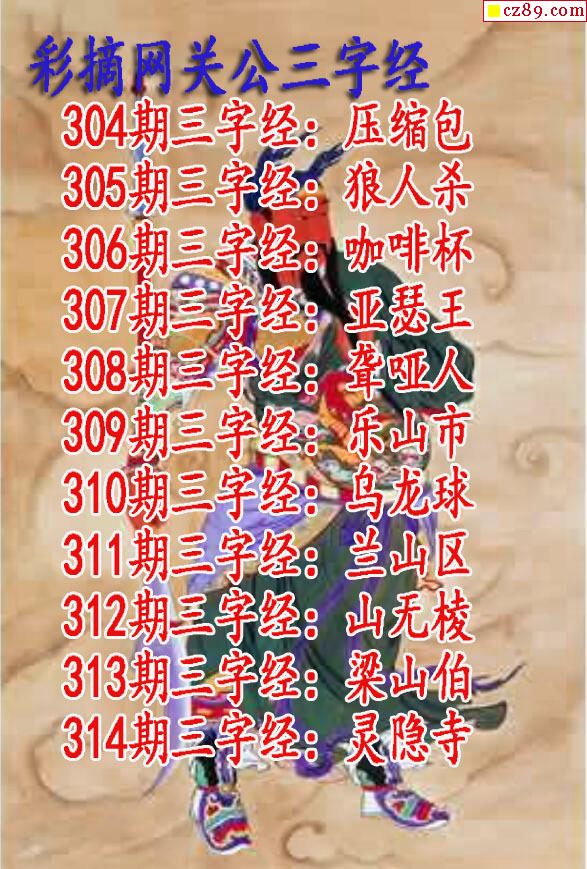 cz89.com
彩摘网关公三字经
304期三字经：压缩包
305期三字经：狼人杀
306期三字经：咖啡杯
307期三字经：亚瑟王
308期三字经：聋哑人
309期三字经：乐山市
310期三字经：乌龙球
311期三字经：兰山区
312期三字经：山无棱
313期三字经：梁山伯
314期三字经：灵隐寺